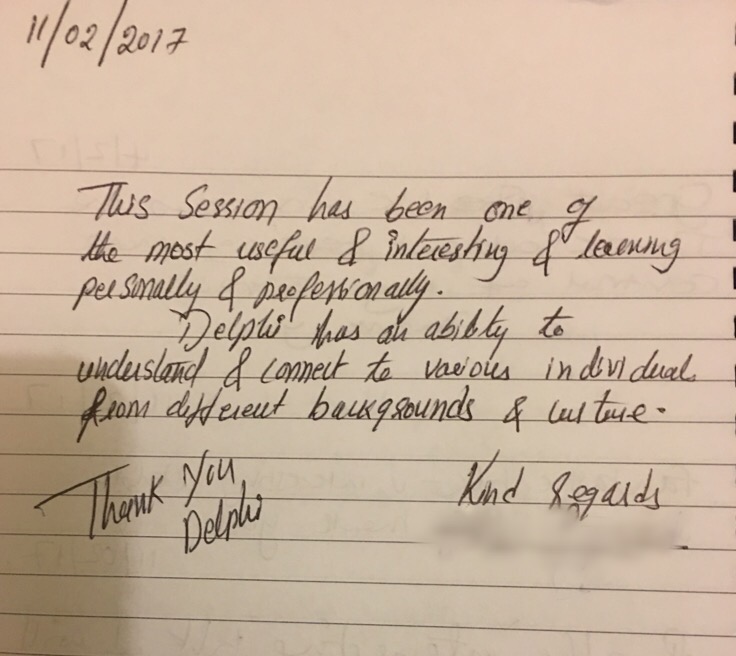 11/02/2017
This Session has been one of
the most useful & interesting & learning
personally & professionally.
Delphi has an ability to
understand & connect to various individual
from different backgrounds & culture.
Thank You,
Delphi
Kind Regards